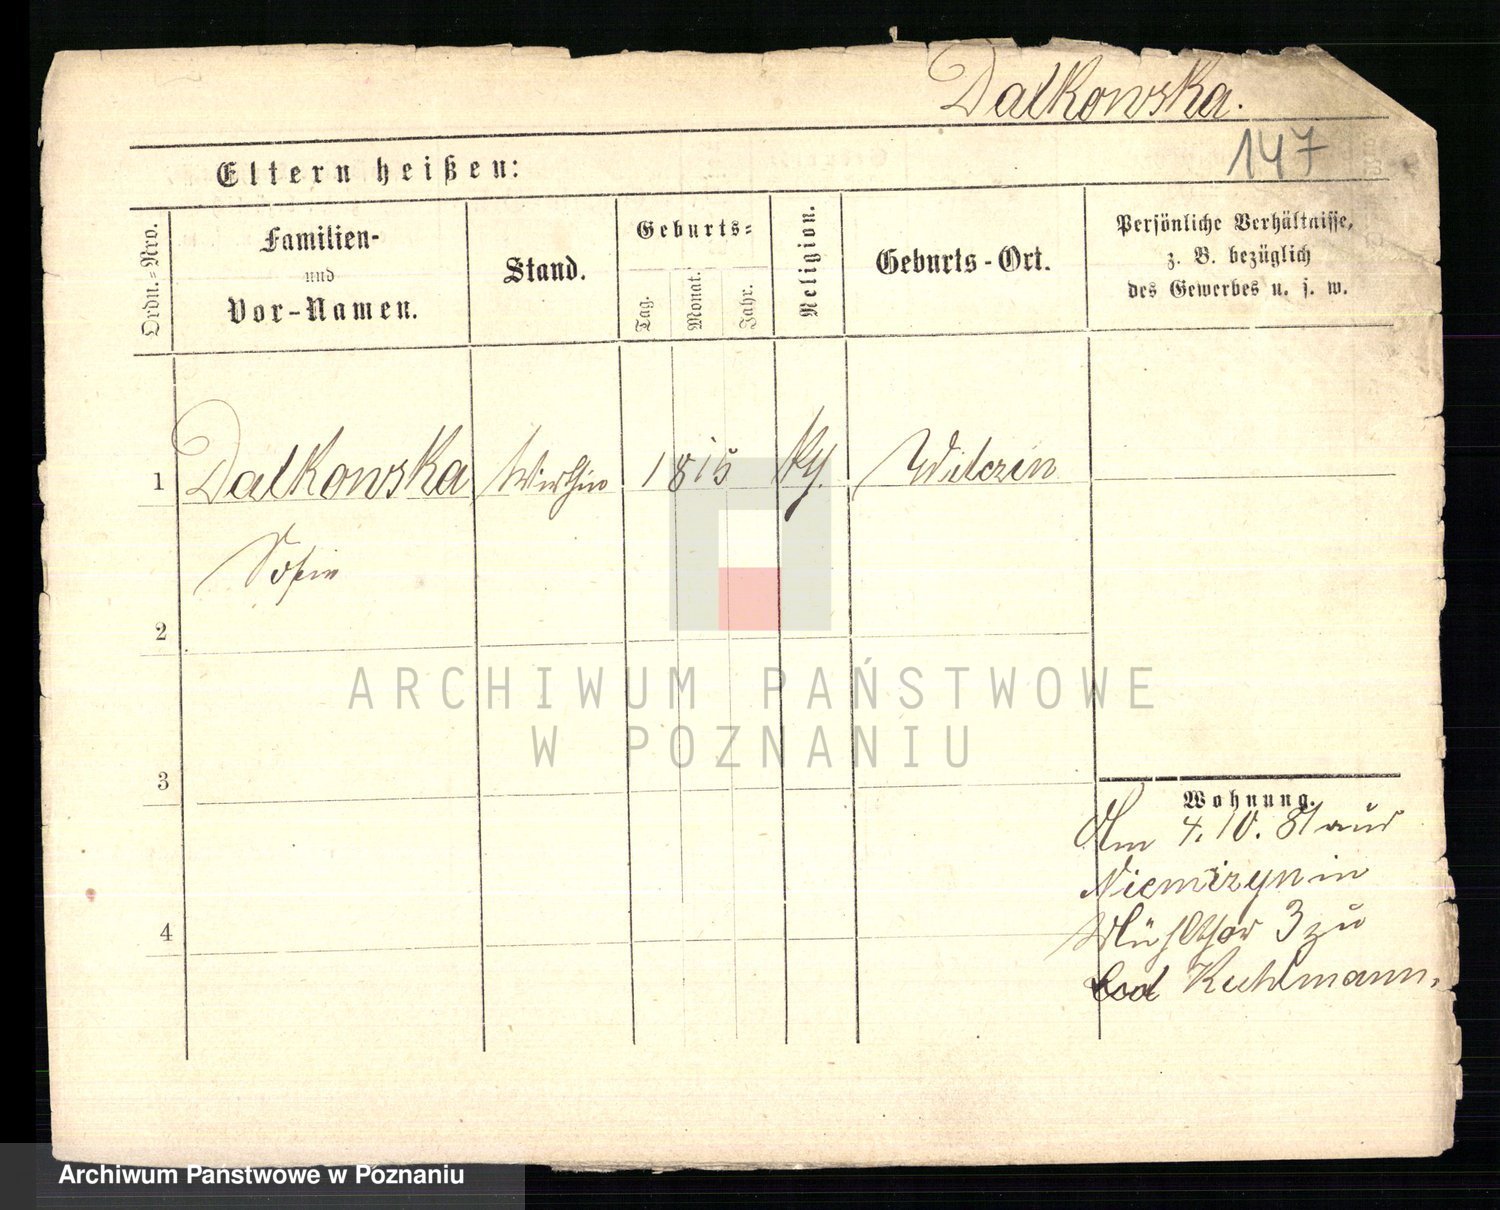 Dalkowska.
147
Eltern heißen:
Ordn.=Nro.
Familien-
und
Vor-Namen.
Stand.
Geburts=
Tag.
Monat.
Jahr.
Religion.
Geburts-Ort.
Persönliche Verhältnisse,
z. B. bezüglich
des Gewerbes u. s. w.
1 Dalkowska Wirthin 1815 Wilczin
Sofie
2
3
4
ARCHIWUM PAŃSTWOWE
W POZNANIU
Wohnung.
Am 4. 10. 81 aus
Niemczyn in
Mühlthor 3 zu
Kuhlmann.
Archiwum Państwowe w Poznaniu